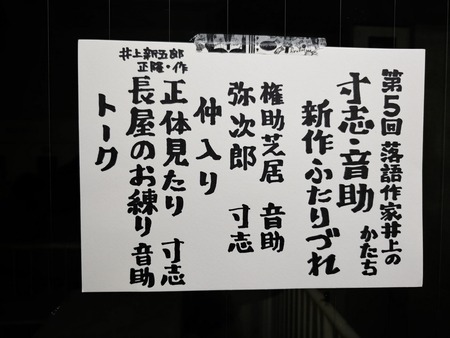 第5回 落語作家井上の
かたち
寸志・音助
新作ふたりづれ
権助芝居 音助
弥次郎 寸志
仲入り
正体見たり 寸志
長屋のお練り 音助
井上新五郎
正隆・作
トーク